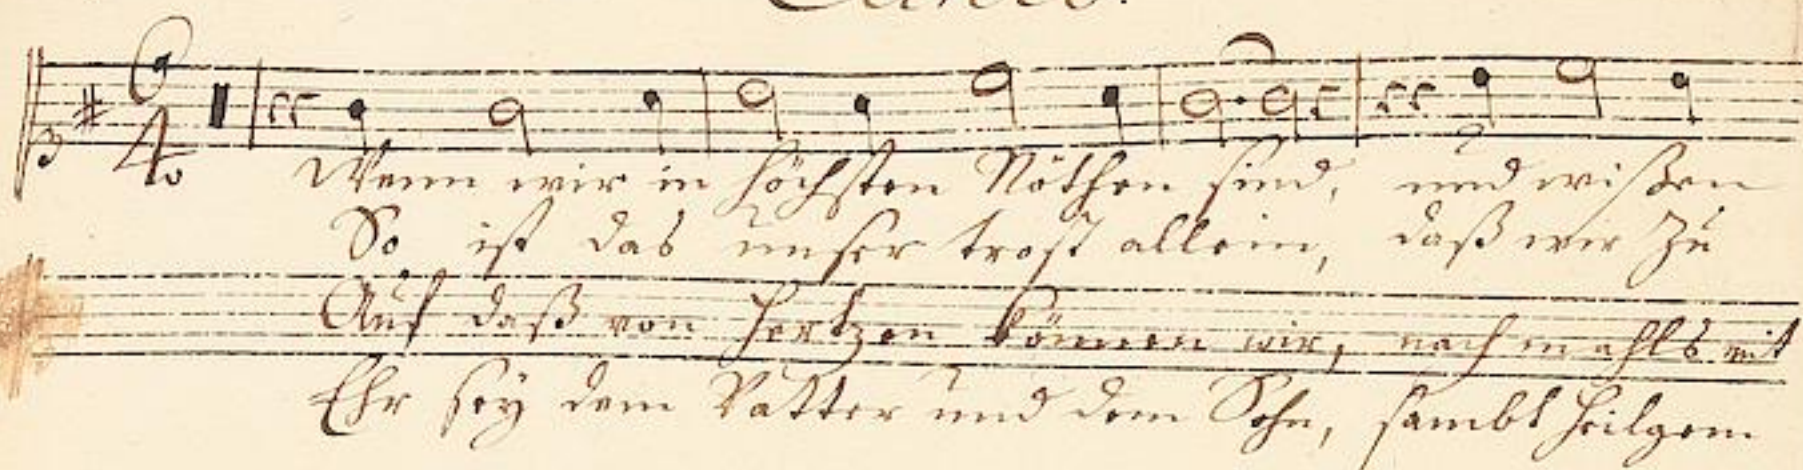 6
4
Wenn wir in höchsten Nöthen sind, und wißen
So ist das unser trost allein, daß wir zu
Auf daß von Hertzen können wir, nachmahls mit
Ehr sey dem Vatter und dem Sohn, sambt Heilgem